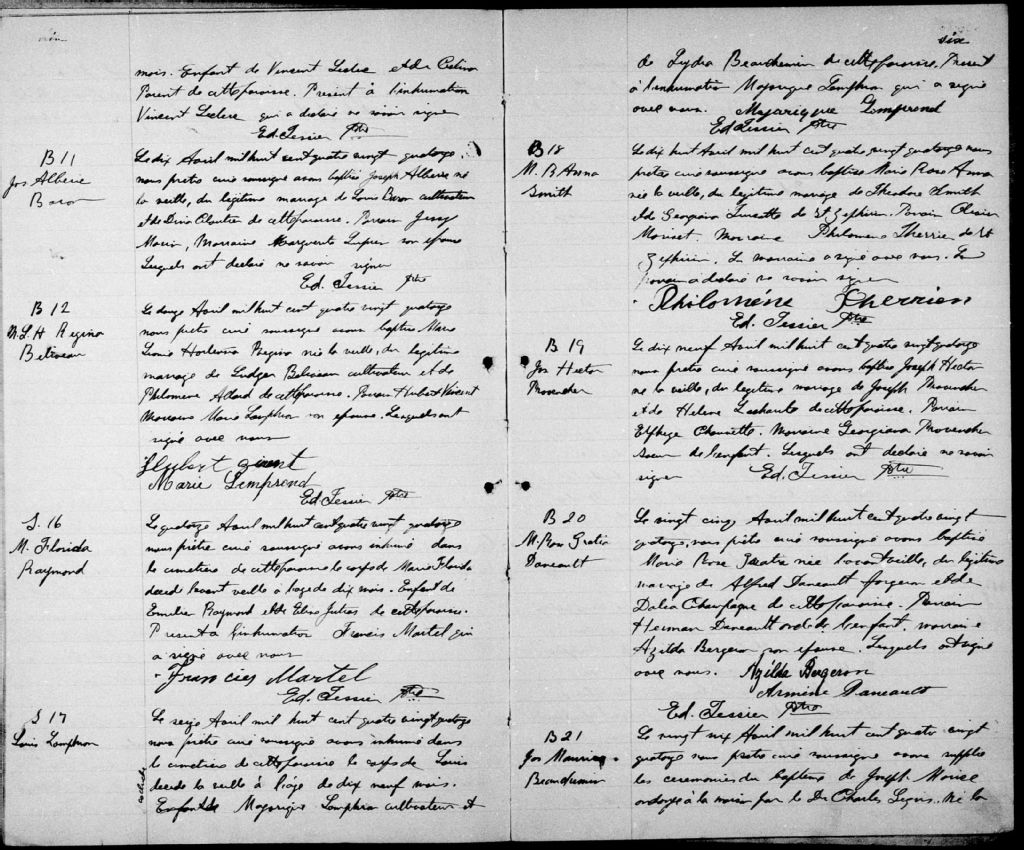 mois. Enfant de Vincent Leclerc et de
Parent de cette paroisse. Présent à l'inhumation
Vincent Leclerc qui a déclaré ne savoir signer
Ed. Tessier Ptre
B 11
Jos Alberie
Baron
Le dix Avril mil huit cent quatre vingt quatorze
nous prêtre curé soussigné avons baptisé Joseph né
la veille, du légitime mariage de Louis Baron cultivateur
et de Dina Cloutier de cette paroisse. Parrain
Morin, Marraine Marguerite son épouse
Lesquels ont déclaré ne savoir signer
Ed. Tessier Ptre
B 12
M. L. H Regina
Beliveau
Le douze Avril mil huit cent quatre vingt quatorze
nous prêtre curé soussigné avons baptisé Marie
Regina née la veille, du légitime
mariage de Ludger Beliveau cultivateur et de
Philomene Allard de cette paroisse. Parrain Hubert Vincent
Marraine Marie Lamprion son épouse. Lesquels ont
signé avec nous
Hubert
Marie Lemprend
Ed. Tessier Ptre
S. 16
M. Florida
Raymond
Le quatorze Avril mil huit cent quatre vingt quatorze
nous prêtre curé soussigné avons inhumé dans
le cimetière de cette paroisse le corps de Marie Florida
décédé l'avant veille à l'age de dix mois. Enfant de
Raymond et de Julias de cette paroisse.
Présent à l'inhumation Francis Martel qui
a signé avec nous
Francies Martel
Ed. Tessier Ptre
S 17
Louis Lamprion
Le seize Avril mil huit cent quatre vingt quatorze
nous prêtre curé soussigné avons inhumé dans
le cimetière de cette paroisse le corps de Louis
décédé la veille à l'age de dix neuf mois.
Enfant de Majorique Lamprion cultivateur et
six
de Lydia Beauchemin de cette paroisse. Présent
à l'inhumation Majorique Lamprion qui a signé
avec nous. Majorique Lemprend
Ed Tessier Ptre
B 18
M. R Anna
Smith
Le dix huit Avril mil huit cent quatre vingt quatorze nous
prêtre curé soussigné avons baptisé Marie Rose Anna
née la veille, du légitime mariage de Theodore Smith
et de Georgiana de St Zephirin. Parrain
Morisset. Marraine Philomene Therrien de St
Zephirin. La marraine a signé avec nous. Le
parrain a déclaré ne savoir signer
Philoméne Therrien
Ed. Tessier Ptre
B 19
Jos Hector
Provencher
Le dix neuf Avril mil huit cent quatre vingt quatorze
nous prêtre curé soussigné avons baptisé Joseph Hector
né la veille, du légitime mariage de Joseph Provencher
et de Helene Lacharite de cette paroisse. Parrain
Elphege Marraine Georgiana Provencher
soeur de l'enfant. Lesquels ont déclaré ne savoir
signer Ed. Tessier Ptre
B 20
M. Rose
Daneault
Le vingt cinq Avril mil huit cent quatre vingt
quatorze, nous prêtre curé soussigné avons baptisé
Marie Rose née l'avant veille, du légitime
mariage de Alfred Daneault forgeron et de
Dalia Champagne de cette paroisse. Parrain
Daneault oncle de l'enfant, marraine
Azilda Bergeron son épouse. Lesquels ont signé
avec nous. Azilda Bergeron
Daneault
Ed. Tessier Ptre
B 21
Jos Maurice
Beauchemin
Le vingt six Avril mil huit cent quatre vingt
quatorze nous prêtre curé soussigné avons suppléé
les ceremonies du baptême de Joseph
ondoyé à la maison par le Dr Charles né la